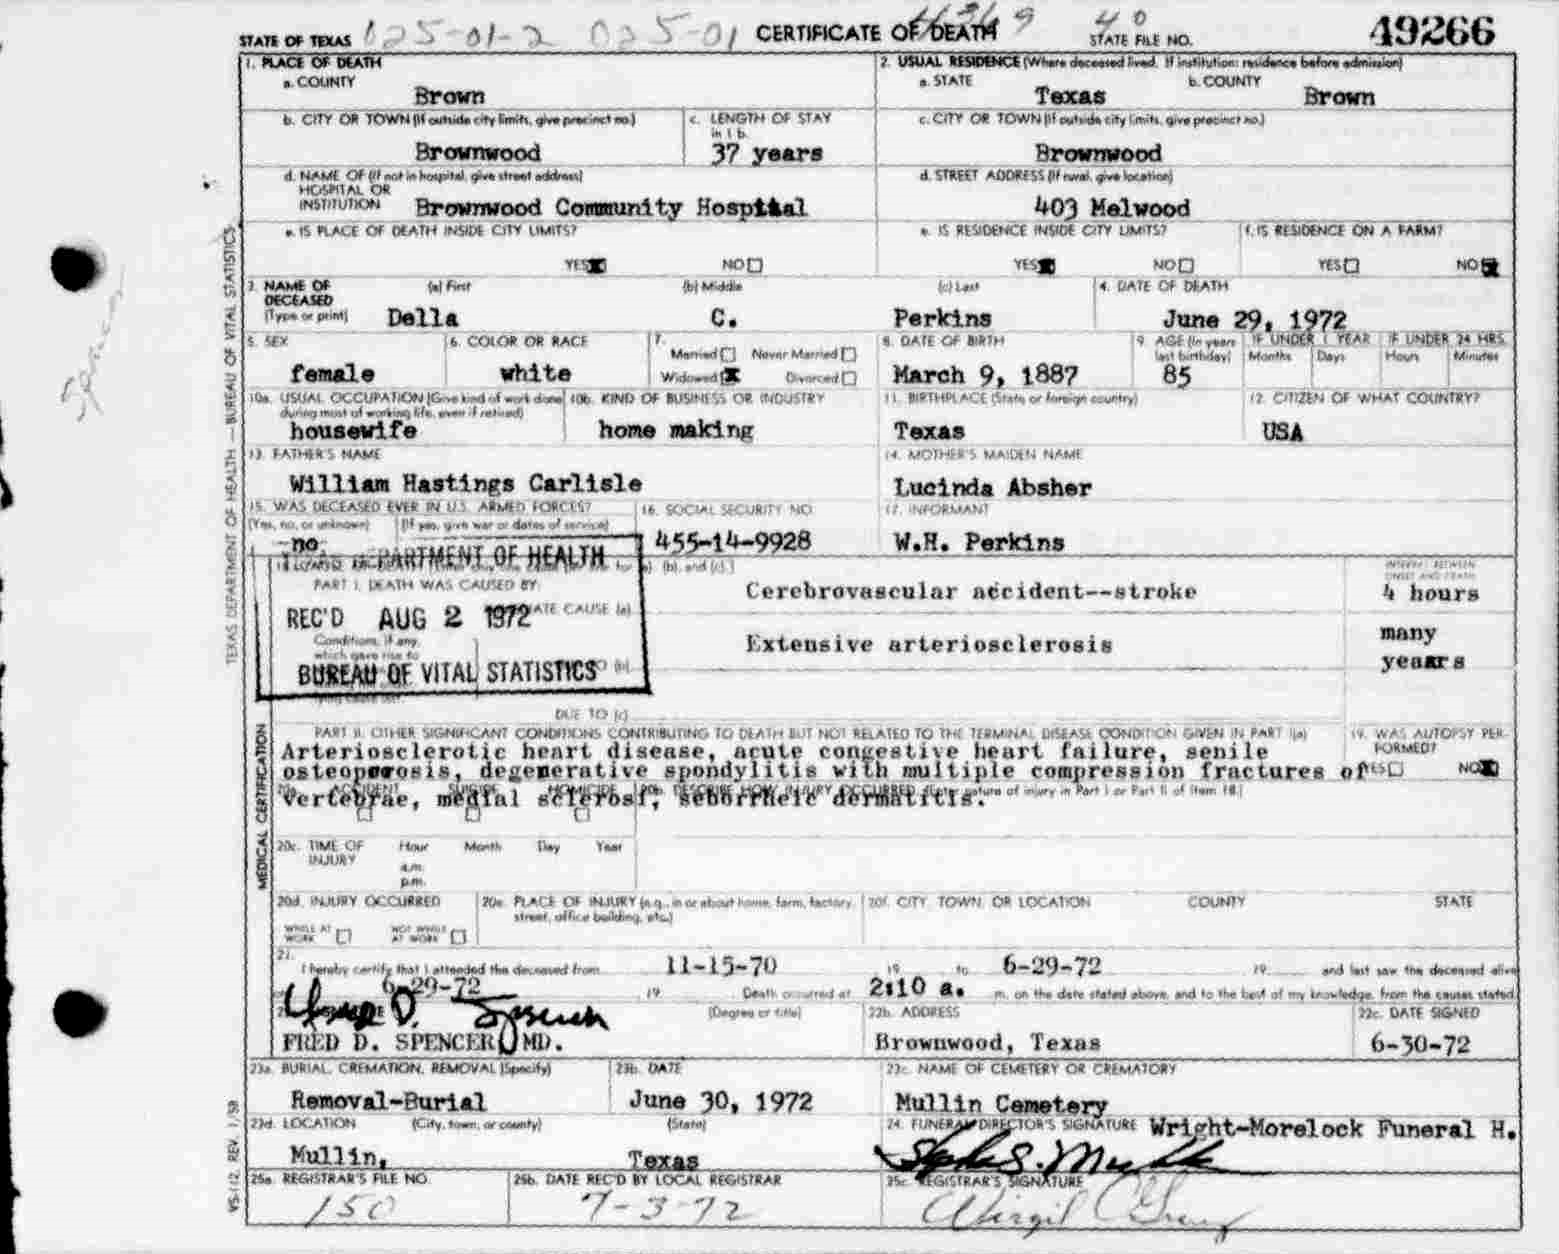 STATE OF TEXAS 025-01-2 025-01 CERTIFICATE OF DEATH STATE FILE NO. 40 49266
1. PLACE OF DEATH
a. COUNTY
Brown
2. USUAL RESIDENCE (Where deceased lived. If institution: residence before admission)
a. STATE b. COUNTY
Texas Brown
b. CITY OR TOWN (If outside city limits, give precinct no.) c. LENGTH OF STAY in 1 b.
Brownwood 37 years
c. CITY OR TOWN (If outside city limits, give precinct no.)
Brownwood
d. NAME OF (If not in hospital, give street address)
HOSPITAL OR
INSTITUTION Brownwood Community Hospital
d. STREET ADDRESS (If rural, give location)
403 Melwood
e. IS PLACE OF DEATH INSIDE CITY LIMITS?
YES NO
e. IS RESIDENCE INSIDE CITY LIMITS? f. IS RESIDENCE ON A FARM?
YES NO YES NO
3. NAME OF DECEASED (Type or print) (a) First (b) Middle (c) Last
Della C. Perkins
4. DATE OF DEATH
June 29, 1972
5. SEX
female
6. COLOR OR RACE
white
7.
Married Never Married
Widowed Divorced
8. DATE OF BIRTH
March 9, 1887
9. AGE (In years last birthday) IF UNDER 1 YEAR IF UNDER 24 HRS.
Months Days Hours Minutes
85
10a. USUAL OCCUPATION (Give kind of work done during most of working life, even if retired)
housewife
10b. KIND OF BUSINESS OR INDUSTRY
home making
11. BIRTHPLACE (State or foreign country)
Texas
12. CITIZEN OF WHAT COUNTRY?
USA
13. FATHER'S NAME
William Hastings Carlisle
14. MOTHER'S MAIDEN NAME
Lucinda Absher
15. WAS DECEASED EVER IN U.S. ARMED FORCES?
(Yes, no, or unknown) (If yes, give war or dates of service)
no
16. SOCIAL SECURITY NO.
455-14-9928
17. INFORMANT
W.H. Perkins
DEPARTMENT OF HEALTH
REC'D AUG 2 1972
BUREAU OF VITAL STATISTICS
(b), and (c).)
PART I. DEATH WAS CAUSED BY:
CAUSE (a)
Cerebrovascular accident--stroke
INTERVAL BETWEEN ONSET AND DEATH
4 hours
Conditions, if any,
which gave rise to
(b)
Extensive arteriosclerosis
many
yeaars
DUE TO (c)
PART II. OTHER SIGNIFICANT CONDITIONS CONTRIBUTING TO DEATH BUT NOT RELATED TO THE TERMINAL DISEASE CONDITION GIVEN IN PART I(a)
Arteriosclerotic heart disease, acute congestive heart failure, senile
osteoporosis, degenerative spondylitis with multiple compression fractures of
vertebrae, medial sclerosi, seborrheic dermatitis.
19. WAS AUTOPSY PERFORMED?
YES NO
20a. ACCIDENT SUICIDE HOMICIDE 20b. DESCRIBE HOW INJURY OCCURRED. (Enter nature of injury in Part I or Part II of Item 18.)
20c. TIME OF INJURY Hour Month Day Year
a.m.
p.m.
20d. INJURY OCCURRED
WHILE AT WORK NOT WHILE AT WORK
20e. PLACE OF INJURY (e.g., in or about home, farm, factory, street, office building, etc.)
20f. CITY, TOWN, OR LOCATION COUNTY STATE
21.
I hereby certify that I attended the deceased from 11-15-70 19 to 6-29-72 19 and last saw the deceased alive
6-29-72 19 . Death occurred at 2:10 a. m. on the date stated above, and to the best of my knowledge, from the causes stated.
Fred D. Spencer
(Degree or title)
FRED D. SPENCER, MD.
22b. ADDRESS
Brownwood, Texas
22c. DATE SIGNED
6-30-72
23a. BURIAL, CREMATION, REMOVAL (Specify)
Removal-Burial
23b. DATE
June 30, 1972
23c. NAME OF CEMETERY OR CREMATORY
Mullin Cemetery
23d. LOCATION (City, town, or county) (State)
Mullin, Texas
24. FUNERAL DIRECTOR'S SIGNATURE Wright-Morelock Funeral H.
25a. REGISTRAR'S FILE NO.
150
25b. DATE REC'D BY LOCAL REGISTRAR
7-3-72
25c. REGISTRAR'S SIGNATURE
Virgil
TEXAS DEPARTMENT OF HEALTH — BUREAU OF VITAL STATISTICS
MEDICAL CERTIFICATION
VS-112 REV. 1/58
Spencer